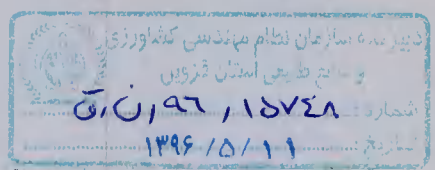 دبیرخانه سازمان نظام مهندسی کشاورزی
و منابع طبیعی استان قزوین
شماره: ۱۵۷۴۸ / ۹۶ / ن ق
تاریخ: ۱۳۹۶/۵/۱۱